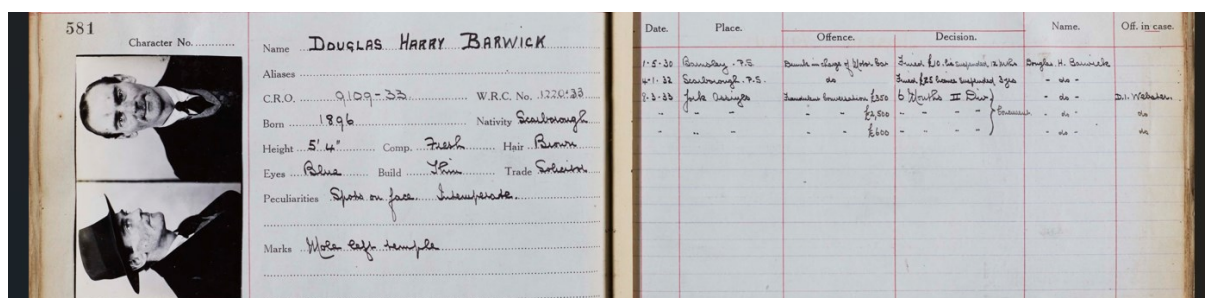 581
Character No.
Name DOUGLAS HARRY BARWICK
Aliases
C.R.O. 9109-33 W.R.C. No. 1220/33
Born 1896 Nativity Scarborough
Height 5' 4" Comp. Fresh Hair Brown
Eyes Blue Build Thin Trade Solicitor
Peculiarities Spots on face Intemperate
Marks Mole left temple
Date. Place. Offence. Decision. Name. Off. in case.
1-5-30 Barnsley. P.S. Drunk in charge of Motor Car Fined £10. Lic suspended, 12 mths Douglas. H. Barwick
4-1-32 Scarborough. P.S. do Fined £25 Licence suspended 3 yrs - do -
8-3-33 York Assizes Fraudulent Conversion £350 6 Months II Div - do - D.I. Webster
" " " " " £2,500 " " " Concurrent - do - do
" " " " " £600 " " " - do - do